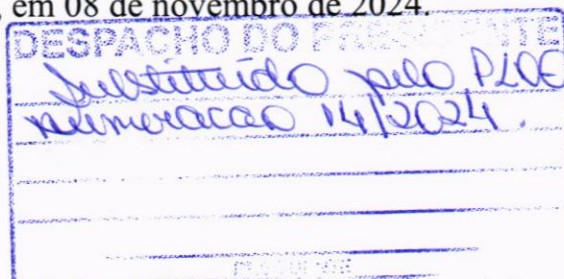 , em 08 de novembro de 2024.
DESPACHO DO PRESIDENTE
Substituído pelo PLOE
numeracao 14/2024.